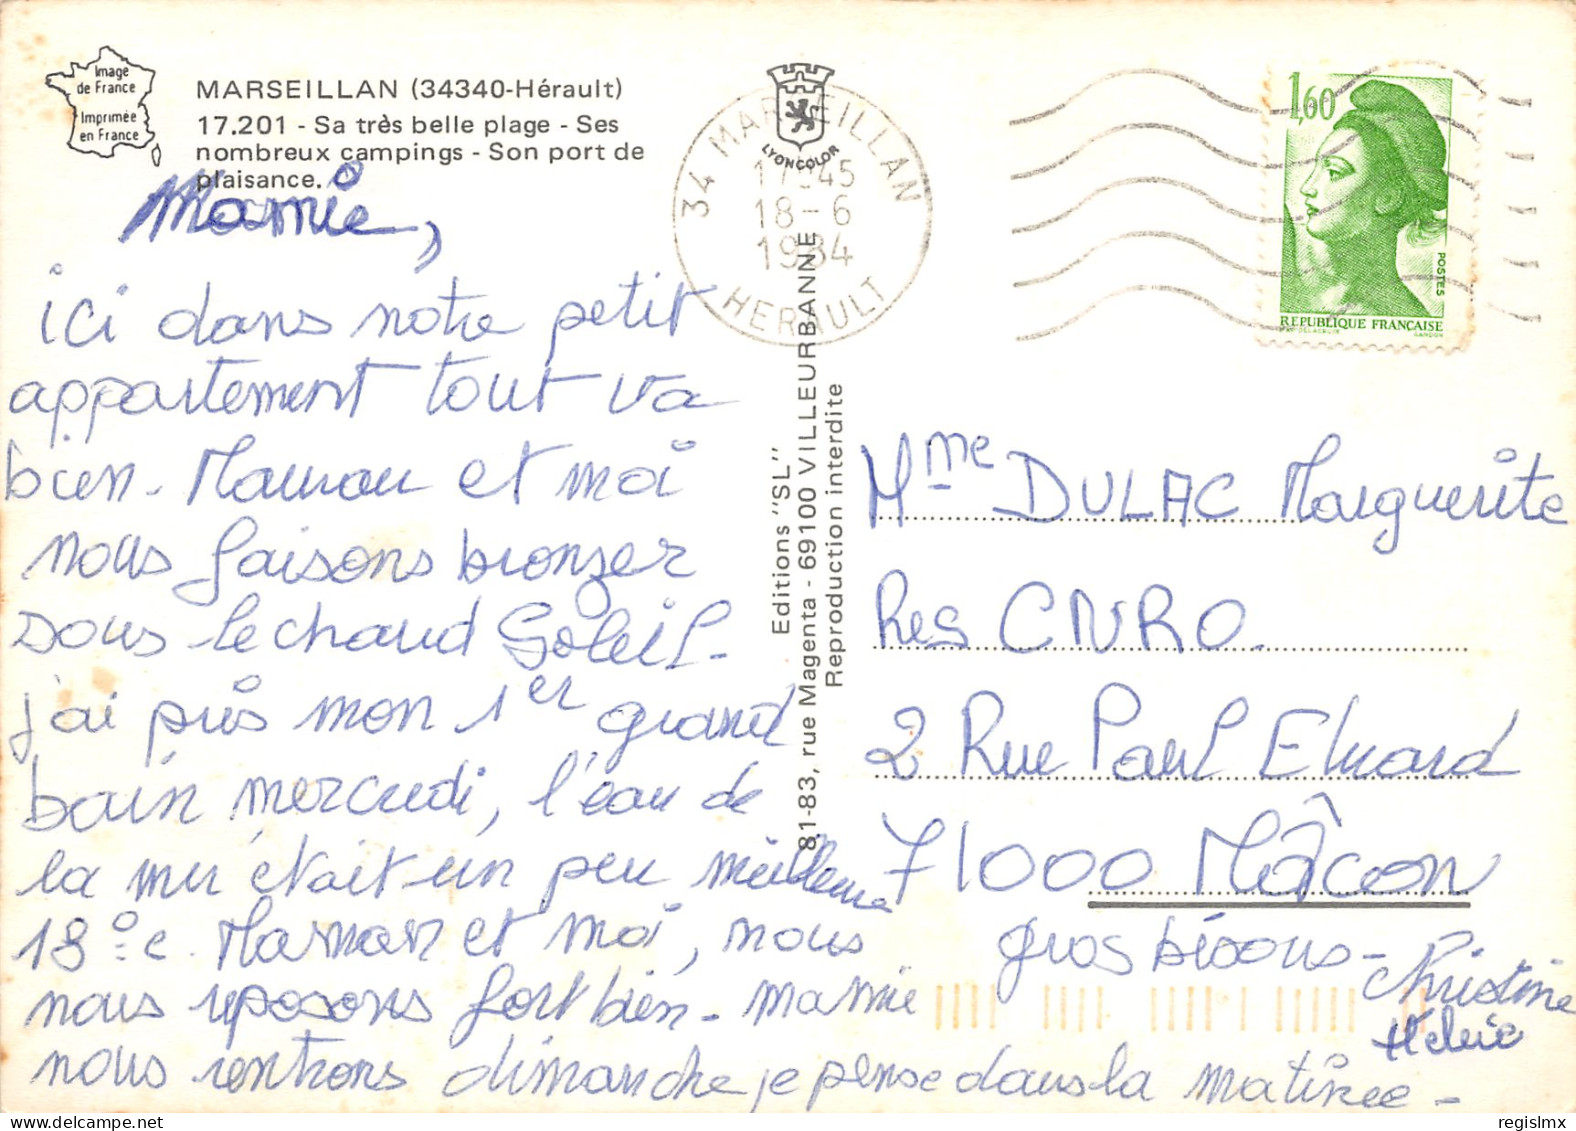 Image
de France
Imprimée
en France
MARSEILLAN (34340-Hérault)
17.201 - Sa très belle plage - Ses
nombreux campings - Son port de
plaisance.
Mamie,
ici dans notre petit
appartement tout va
bien. Maman et moi
nous faisons bronzer
sous le chaud Soleil.
j'ai pris mon 1er grand
bain mercredi, l'eau de
la mer était un peu meilleure
18°c. Maman et moi, nous
nous reposons fort bien. mamie
nous rentrons dimanche je pense dans la matinée.
LYONCOLOR
34 MARSEILLAN
17 45
18-6
1984
HERAULT
Editions "SL"
81-83, rue Magenta - 69100 VILLEURBANNE
Reproduction interdite
1,60
POSTES
REPUBLIQUE FRANÇAISE
GANDON
Mme DULAC Marguerite
Res CNRO.
2 Rue Paul Eluard
71000 Mâcon
gros bisous.
Christine
Hélène
regislmx